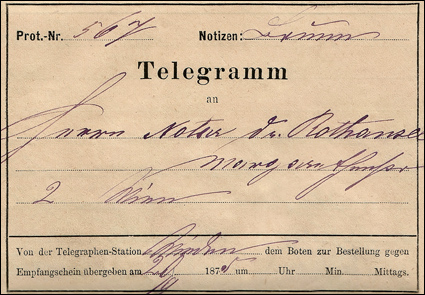 Prot.-Nr. 567 Notizen: Brünn
Telegramm
an
Herrn Notar Dr. Rothansel
2 Wien
Von der Telegraphen-Station Wieden dem Boten zur Bestellung gegen
Empfangschein übergeben am 187 um Uhr Min. Mittags.